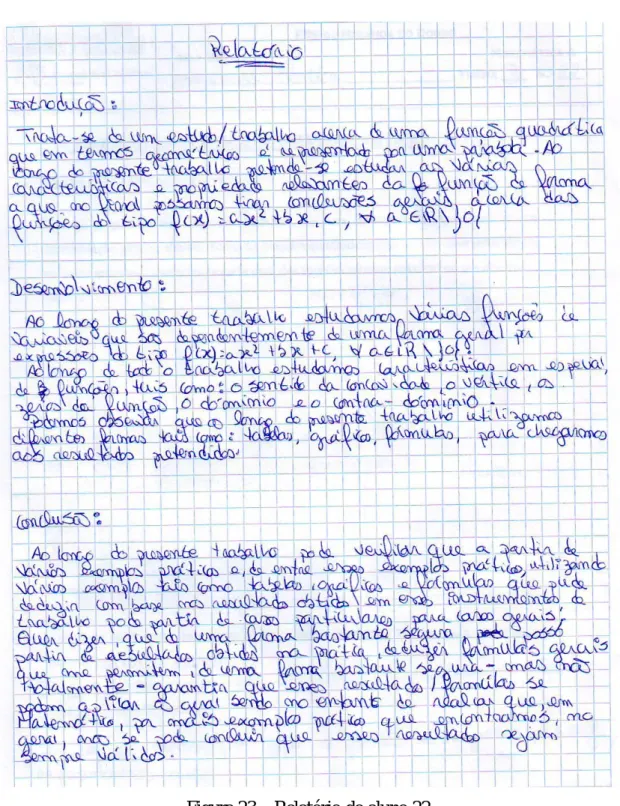 Relatório
Introdução:
Trata-se de um estudo/trabalho acerca de uma função quadrática
que em termos geométricos é representado por uma parábola. Ao
longo do presente trabalho pretende-se estudar as várias
características e propriedade relevantes da função de forma
a que no final possamos tirar conclusões gerais, acerca das
funções do tipo f(x)=ax²+bx,c, ∀ a ∈ℝ\}0{
Desenvolvimento:
Ao longo do presente trabalho estudamos várias funções
variaveis que são dependentemente de uma forma geral por
expressões do tipo f(x)=ax²+bx+c, ∀ a∈ℝ\}0{.
Ao longo de todo o trabalho estudamos características em especial,
de funções, tais como: o sentido da concavidade, o vértice, os
zeros da função, o domínio e o contra-domínio.
Podemos observar que ao longo do presente trabalho utilizamos
diferentes formas tais como: tabelas, gráfico, fórmulas, para chegarmos
aos resultados pretendidos.
Conclusão:
Ao longo do presente trabalho pode verificar que a partir de
vários exemplos práticos e, de entre esses exemplos práticos, utilizando
vários exemplo tais como tabelas, gráficos e fórmulas que pude
deduzir com base nos resultado obtidos em esses instruementos de
trabalho pode partir de casos particulares para casos gerais,
Quer dizer, que de uma forma bastante segura posso
partir de resultados obtidos na prática, deduzir fórmulas gerais
que me permitem, de uma forma bastante segura - mas não
totalmente - garantir que esses resultados/fórmulas se
podem aplicar ao geral sendo no entanto de realçar que, em
Matemática, por mais exemplos prático que encontramos, no
geral, não se pode concluir que esses resultado sejam
sempre válidos.
Figura 23 – Relatório do aluno 22